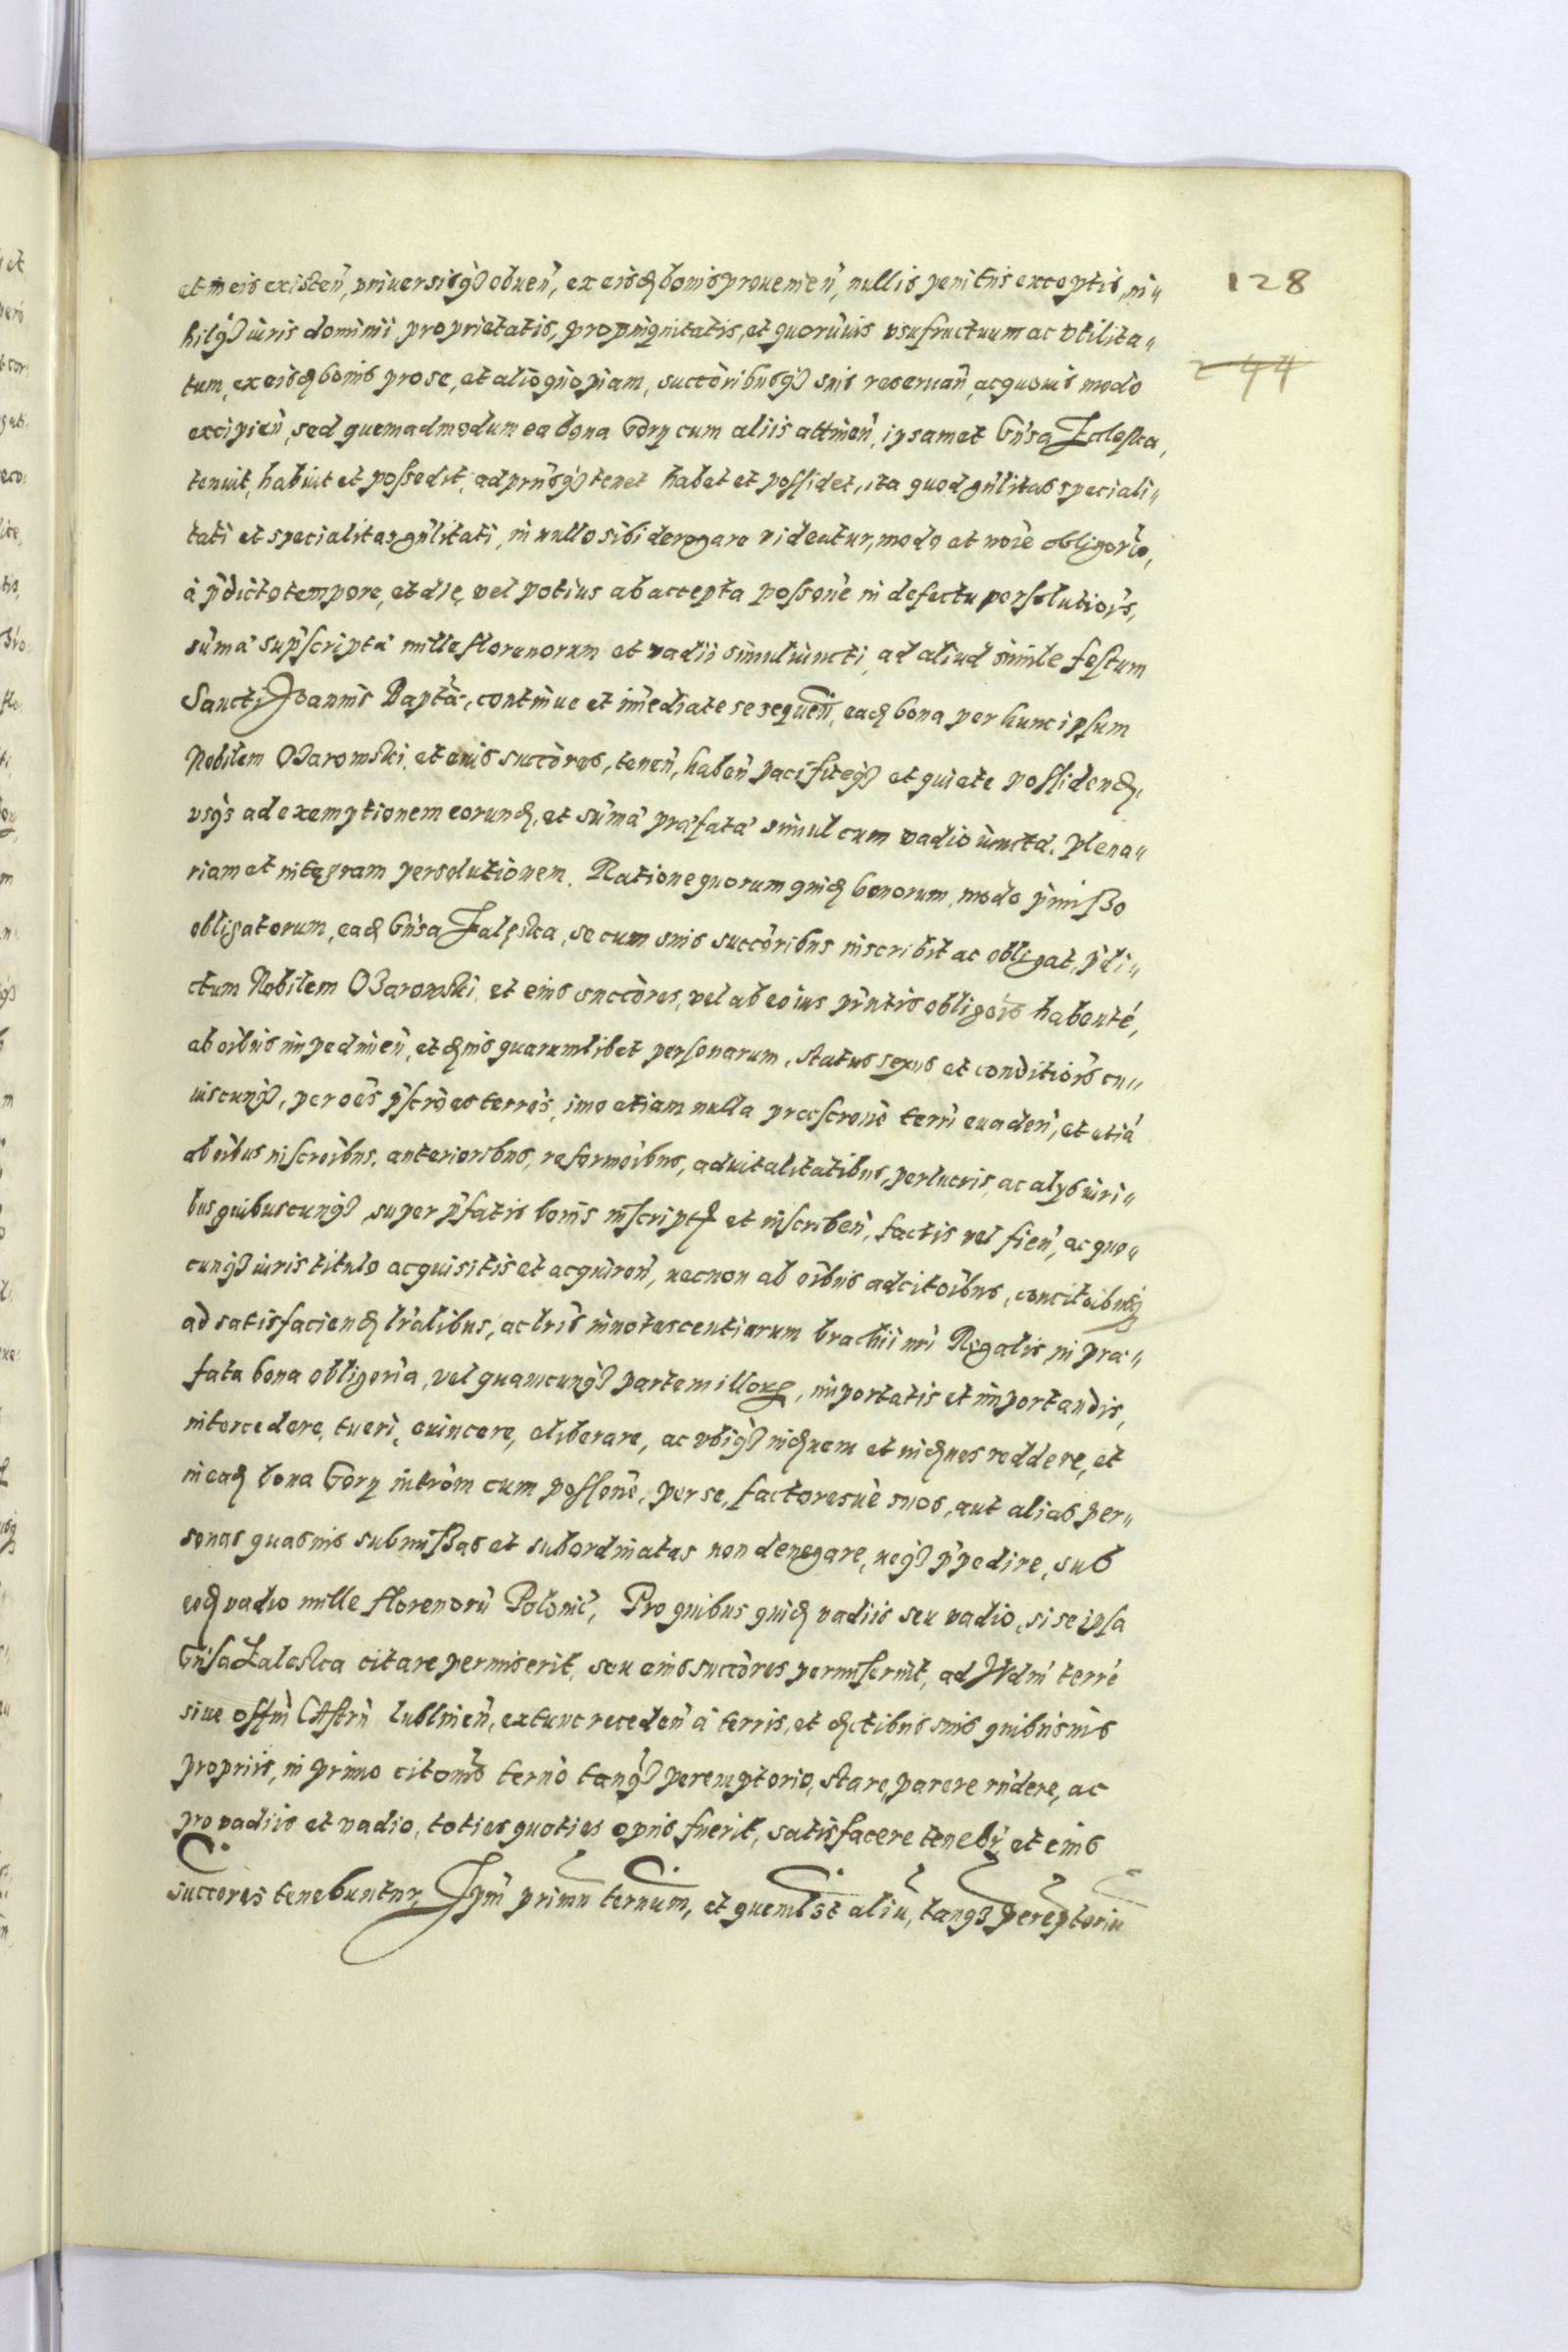 et in eis existeñ, vniuersisq3 obueñ, ex eisd bonis prouenieñ, nullis penitus exceptis, ni„
128
hilq3 iuris dominii proprietatis, propinquitatis, et quorũuis vsufructuum ac vtilita„
244
tum, ex eisd bonis pro se, et alio quopiam, succõribusq3 suis reseruañ, ac quouis modo
excipień, sed quemadmodum ea bona Gory cum aliis attineñ, ipsamet Gñsa Zaleska,
tenuit, habuit et possedit, ad prnsq3 tenet habet et possidet, ita quod gnlitas speciali„
tati et specialitas gnlitati, in nullo sibi derogare videatur, modo et noie obligorio,
à p̃dicto tempore, et die vel potius ab accepta possone in defectu persolutiois,
sum̃a sup̃scripta mille florenorum et vadii simul iuncti, ad aliud simile festum
Sancti Joannis Baptã, continue et im̃ediate se sequeñ, ead bona per hunc ipsum
Nobilem Ożarowski et eius succõres, teneñ, habeñ pacificeq3 et quiete possidend,
vsqs ad exemptionem eorund, et sum̃a præfata simul cum vadio iuncta plena„
riam et integram persolutionem. Ratione quorum quid bonorum, modo p̃misso
obligatorum, ead Gñsa Zaleska, se cum suis succõribus inscribit ac obligat, p̃di„
ctum Nobilem Ożarowski et eius succõres, vel ab eo ius p̃ntis obligois habenté,
ab oibus impedimeñ, et quarumlibet personarum, status sexus et conditiois cu„
iuscunq3, per oẽs terrẽs, imo etiam nulla præscrone terrì euadeñ, et etiã
ab oibus inscroibus, anterioribus, reformoibus, aduitalitatibus, perlucris, ac alys iuri„
bus quibuscunq3, super p̃fatis bonis inscript et inscribeñ, factis vel fieñ, ac quo„
cunq3 iuris titulo acquisitis et acquireñ, necnon ab oibus adcitoibus, concitoibusq3
ad satisfaciend lralibus, ac lris innotescentiarum brachii nri Regalis in præ„
fata bona obligoria, vel quamcunq3 partem illorum, importatis et importandis,
intercedere, tueri, euincere, eliberare, ac vbiq3 reddere, et
in ead bona Gory introm cum possone, per se, factoresue suos, aut alias per„
sonas quasuis submissas et subordinatas non denegare, neq3 p̃pedire, sub
eod vadio mille florenorũ Polonic, Pro quibus quid vadiis seu vadio, si se ipsa
Gñsa Zaleska citare permiserit, seu eius succõres permiserint, ad Judm̃ terrẽ
siue offm̃ Castrñ Lublineñ, extunc recedeñ à terris, et suis quibusuis
propriis, in primo citonis terno tanq3 peremptorio, stare, parere rndere, ac
pro vadiis et vadio, toties quoties opus fuerit, satisfacere tenebr, et eius
succores tenebuntur, Ipm̃ primũ ternum, et quemlȝt aliũ, tanq3 pereptoriũ